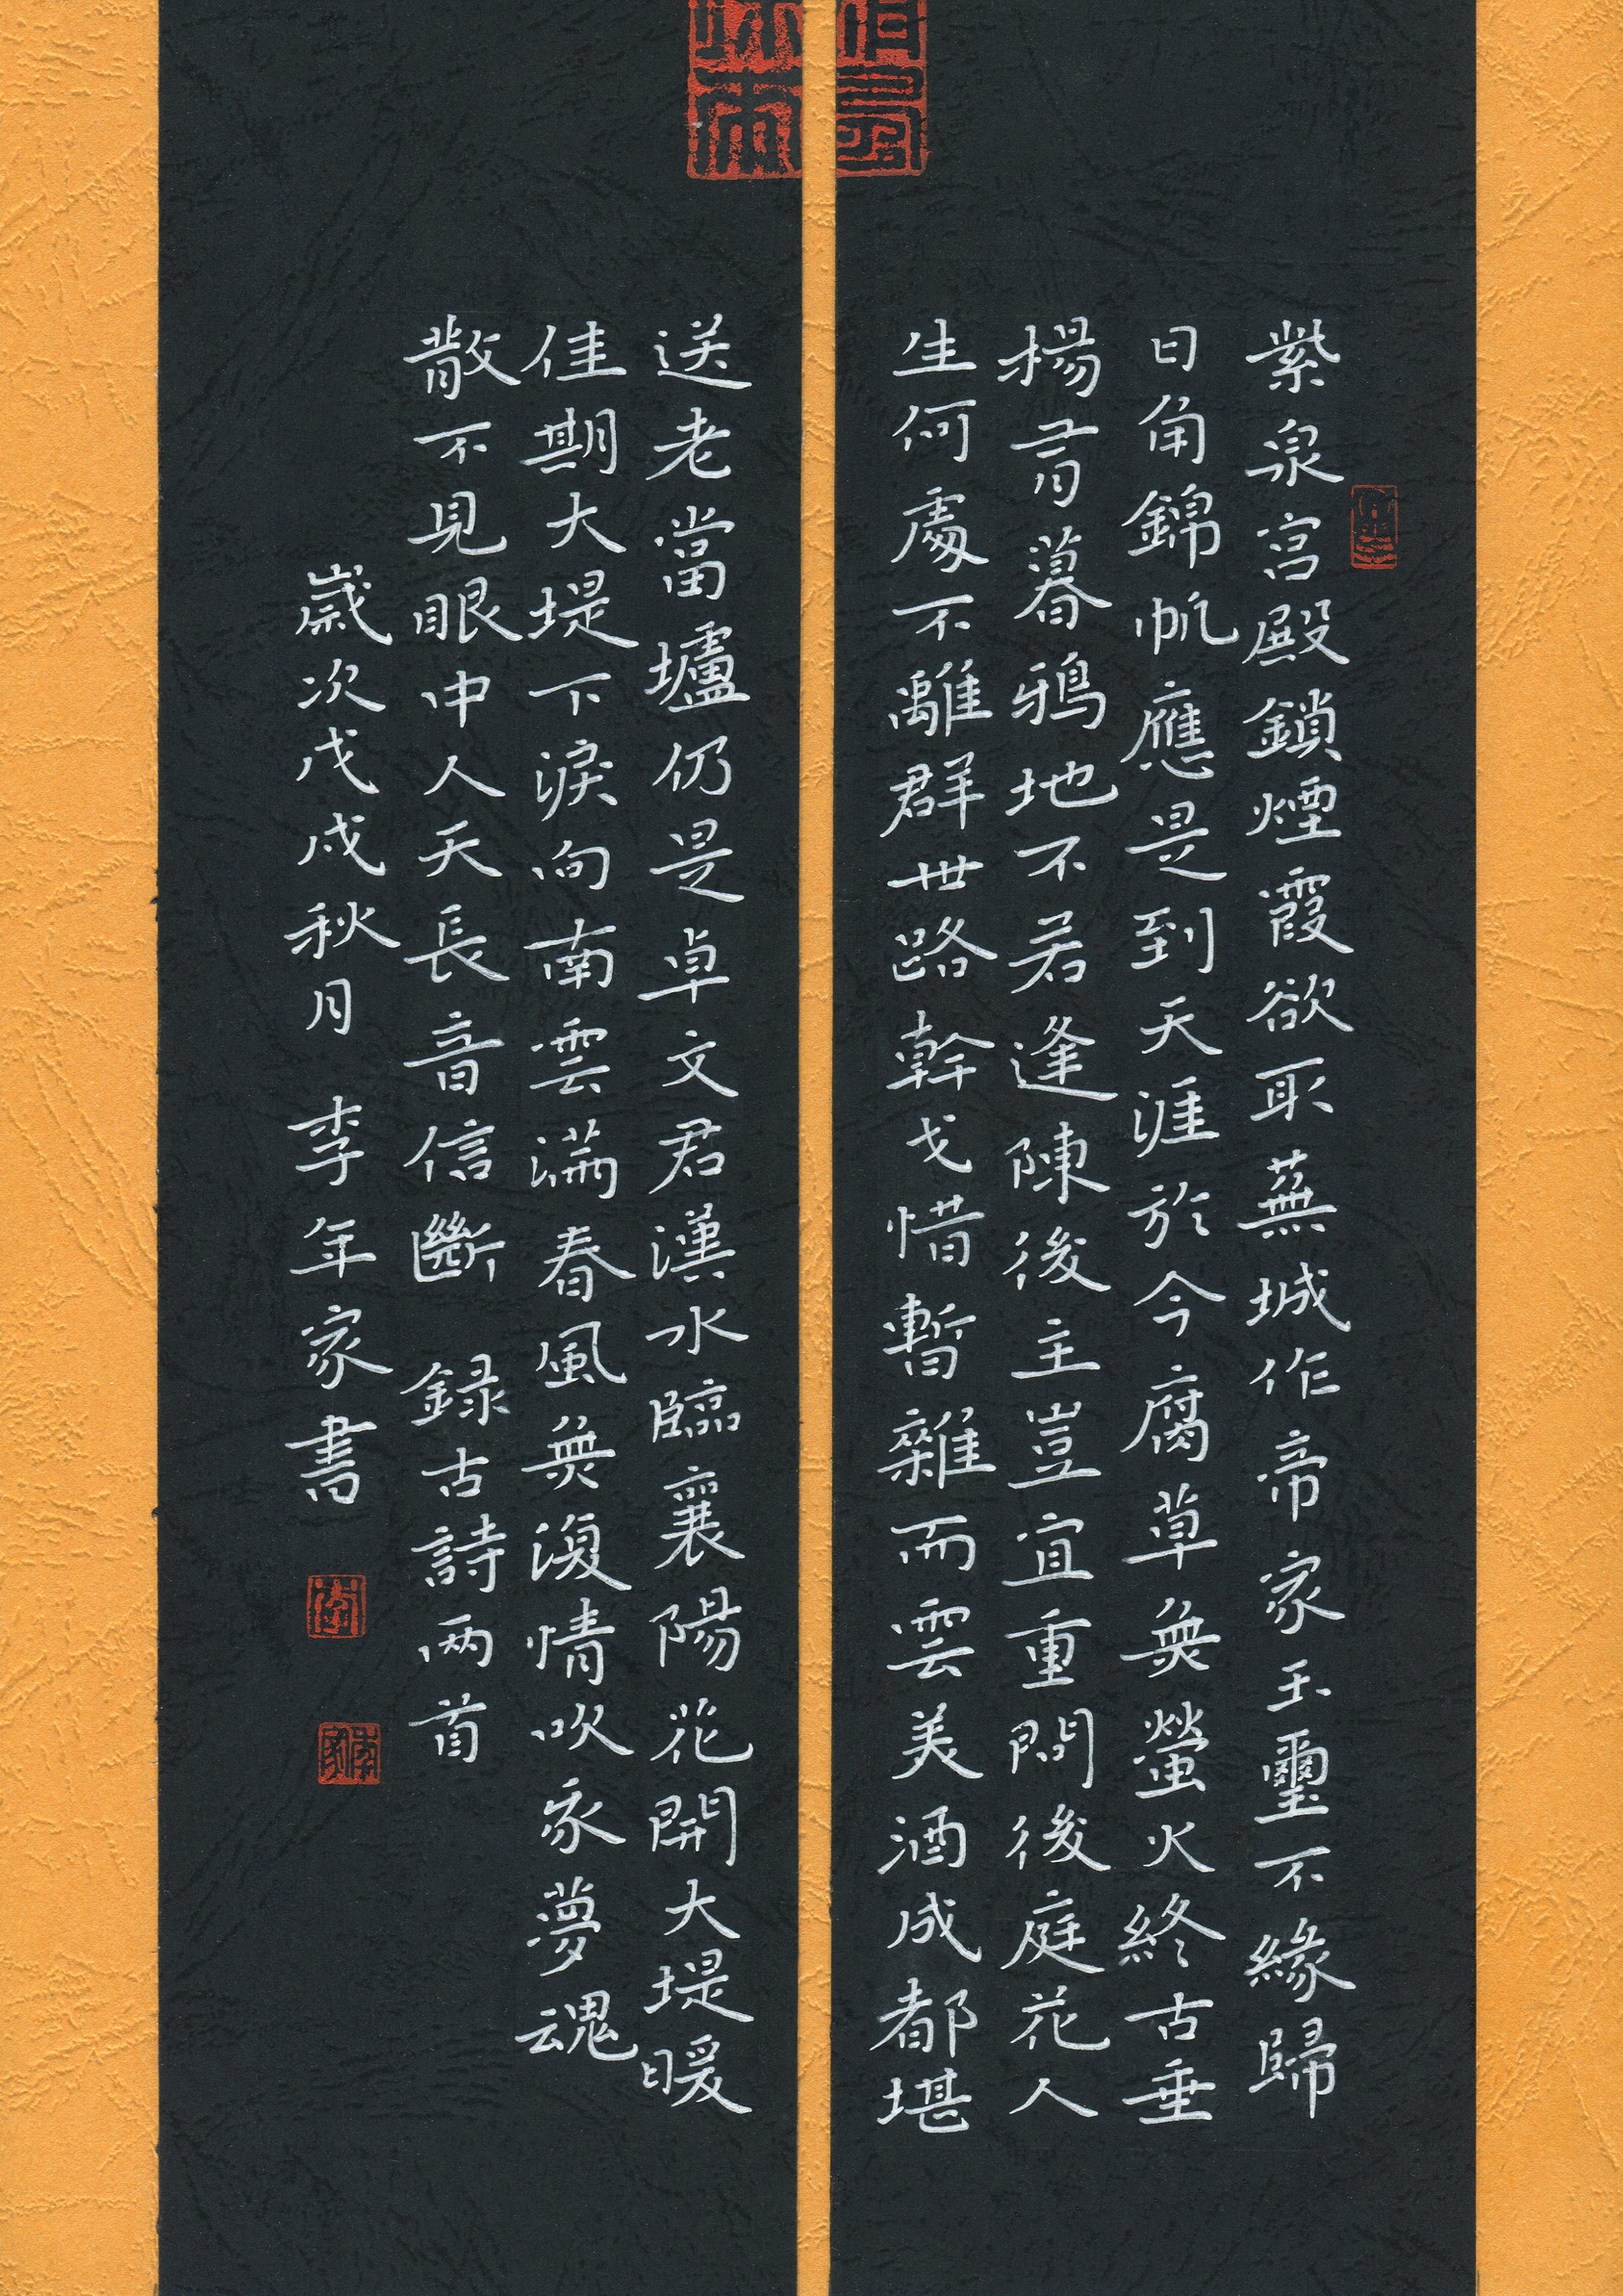 紫泉宮殿鎖煙霞欲取蕪城作帝家玉璽不緣歸
日角錦帆應是到天涯於今腐草無螢火終古垂
楊有暮鴉地不若逢陳後主豈宜重問後庭花人
生何處不離群世路幹戈惜暫雜而雲美酒成都堪
送老當壚仍是卓文君漢水臨襄陽花開大堤暖
佳期大堤下淚向南雲滿春風無復情吹我夢魂
散不見眼中人天長音信斷 録古詩両首
歲次戊戌秋月 李年家書